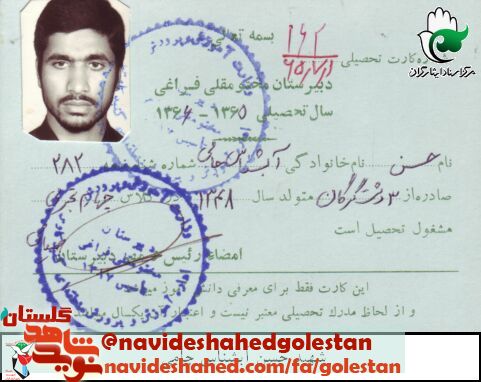 بسمه تعالی
شماره کارت تحصیلی ۱۶۲
۶۵/۷/۱
مرکز اسناد ایثارگران
دبیرستان مختومقلی فراغی
سال تحصیلی ۱۳۶۵ - ۱۳۶۴
نام حسن نام خانوادگی آبشناس جامی شماره شناسنامه ۲۸۲
صادره از ۳ دشتگرگان متولد سال ۱۳۴۸ در کلاس چهارم تجربی
مشغول تحصیل است
امضاء رئیس دبیرستان
این کارت فقط برای معرفی دانش آموز میباشد
و از لحاظ مدرک تحصیلی معتبر نیست و اعتبار آن یکسال میباشد
نوید شاهد گلستان
@navideshahedgolestan
شهید حسن آبشناس جامی
navideshahed.com/fa/golestan